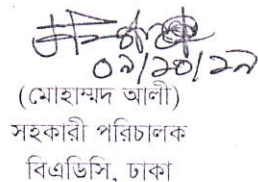 ০৯/১০/১৯
(মোহাম্মদ আলী)
সহকারী পরিচালক
বিএডিসি, ঢাকা